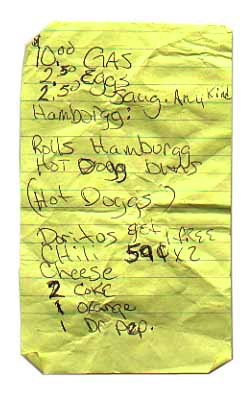 10.00 GAS
2.50 Eggs
2.50 Saug. Any Kind
Hamborgg:
Rolls Hamburgg
HOT Dogg buns
(Hot Doggs)
Doritos get 1 FREE
CHili 59¢ x 2
Cheese
2 Coke
1 Orange
1 Dr Pep.